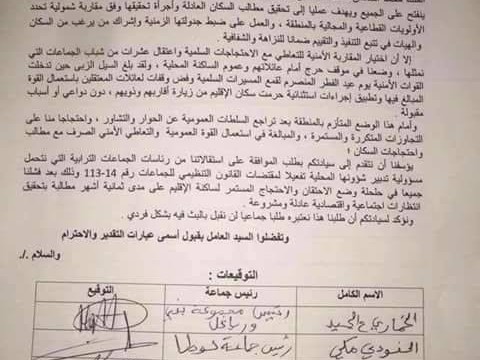 ينفتح على الجميع ويهدف عمليا إلى تحقيق مطالب السكان العادلة وأجرأة تحقيقها وفق مقاربة شمولية تحدد
الأولويات القطاعية والمجالية بالمنطقة ، والعمل على ضبط جدولتها الزمنية وإشراك من يرغب من السكان
والهيآت في تتبع التنفيذ والتقييم ضمانا للنزاهة والشفافية .
إلا أن اختيار المقاربة الأمنية للتعاطي مع الاحتجاجات السلمية واعتقال عشرات من شباب الجماعات التي
نمثلها ، وضعنا في موقف حرج أمام عائلاتهم وعموم الساكنة المحلية ، ولقد بلغ السيل الزبى حين تدخلت
القوات الأمنية يوم عيد الفطر المنصرم لقمع المسيرات السلمية ورفض وقفات لعائلات المعتقلين باستعمال القوة
المبالغ فيها وتطبيق إجراءات استثنائية حرمت سكان الإقليم من زيارة أقاربهم وذويهم ، دون دواعي أو أسباب
مقبولة .
وأمام هذا الوضع المتأزم بالمنطقة بعد تراجع السلطات العمومية عن الحوار والتشاور ، واحتجاجا منا على
التجاوزات المتكررة والمستمرة ، والمبالغة في استعمال القوة العمومية والتعاطي الأمني الصرف مع مطالب
واحتجاجات السكان ؛
يؤسفنا أن نتقدم إلى سيادتكم بطلب الموافقة على استقالاتنا من رئاسات الجماعات الترابية التي نتحمل
مسؤولية تدبير شؤونها المحلية تفعيلا لمقتضات القانون التنظيمي للجماعات رقم 14-113 وذلك بعد فشلنا
جميعا في حلحلة وضع الاحتقان والاحتجاج المستمر لساكنة الإقليم على مدى ثمانية أشهر مطالبة بتحقيق
انتظارات اجتماعية واقتصادية عادلة ومشروعة .
ونؤكد لسيادتكم أن طلبنا هذا نعتبره طلبا جماعيا لن نقبل بالبث فيه بشكل فردي .
وتفضلوا السيد العامل بقبول أسمى عبارات التقدير والاحترام
والسلام ./.
التوقيعات :
الاسم الكامل رئيس جماعة التوقيع
رئيس مجموعة
مكي رئيس جماعة